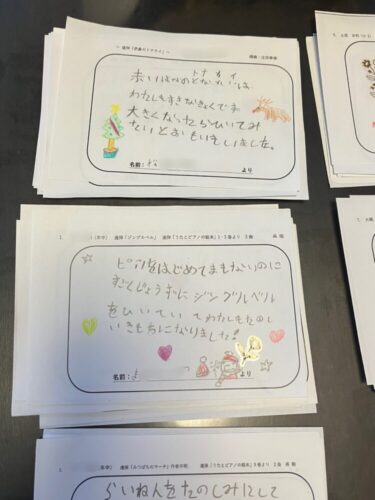 ～ 連弾「赤鼻のトナカイ」～
赤いはなのとなかいは
トナカイ
わたしもすきなきょくです
大きくなったらひいてみ
たいとおもいました。
名前：
より
1.
(年中) 連弾「ジングルベル」 連弾「うたとピアノの絵本」1・3巻より 3曲
ピアノをはじめてまもないのに
すごくじょうずにジングルベル
をひいていてわたしもたのし
いきもちになりました！
名前：
より
年中) 連弾「みつばちのマーチ」作者不明 連弾「うたとピアノの絵本」3巻より 2曲
らいねんをたのしみにして